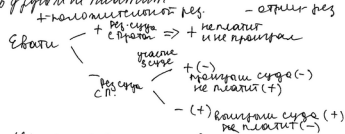 + положительной рез. - отриц рез
Еватл
+ Рез. суда с Протаг => + не платит и не проиграл
участие в суде
- Рез суда с П.
+ (-) проиграл суда (-) не платит (+)
- (+) выиграл суда (+) не платит (-)